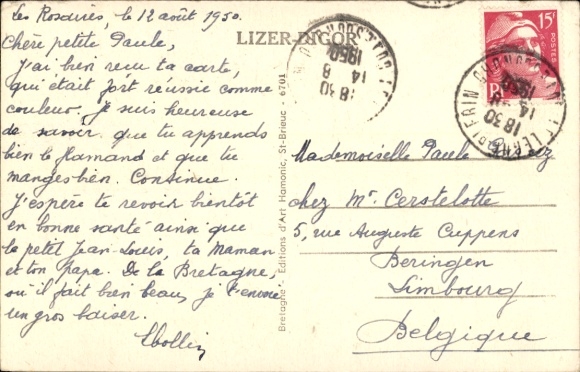 Les Rosaires, le 12 août 1950.
Chère petite Paule,
J'ai bien reçu ta carte,
qui était fort réussie comme
couleur. Je suis heureuse
de savoir que tu apprends
bien le flamand et que tu
manges bien. Continue.
J'espère te revoir bientôt
en bonne santé ainsi que
le petit Jean-Louis, ta Maman
et ton Papa. De la Bretagne,
où il fait bien beau, je t'envoie
un gros baiser.
LIZER-DIGOR
Bretagne - Editions d'Art Hamonic, St-Brieuc - 6701
18 30
14 8
1950
15F
POSTES
18 30
14
1950
Mademoiselle Paule
chez Mr. Cerstelotte
5, rue Auguste Cuppens
Beringen
Limbourg
Belgique